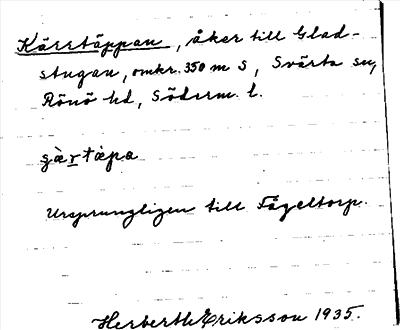 Kärrtäppan, åker till Glad-
stugan, omkr. 350 m S, Svärta sn,
Rönö hd, Söderm. l.
Ursprungligen till Fågeltorp.
Herberth Eriksson 1935.